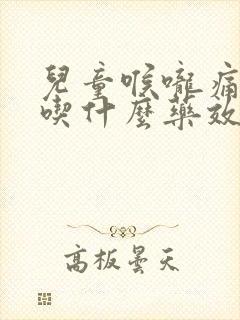 兒童喉嚨痛
喫什麼藥效
高板曇天